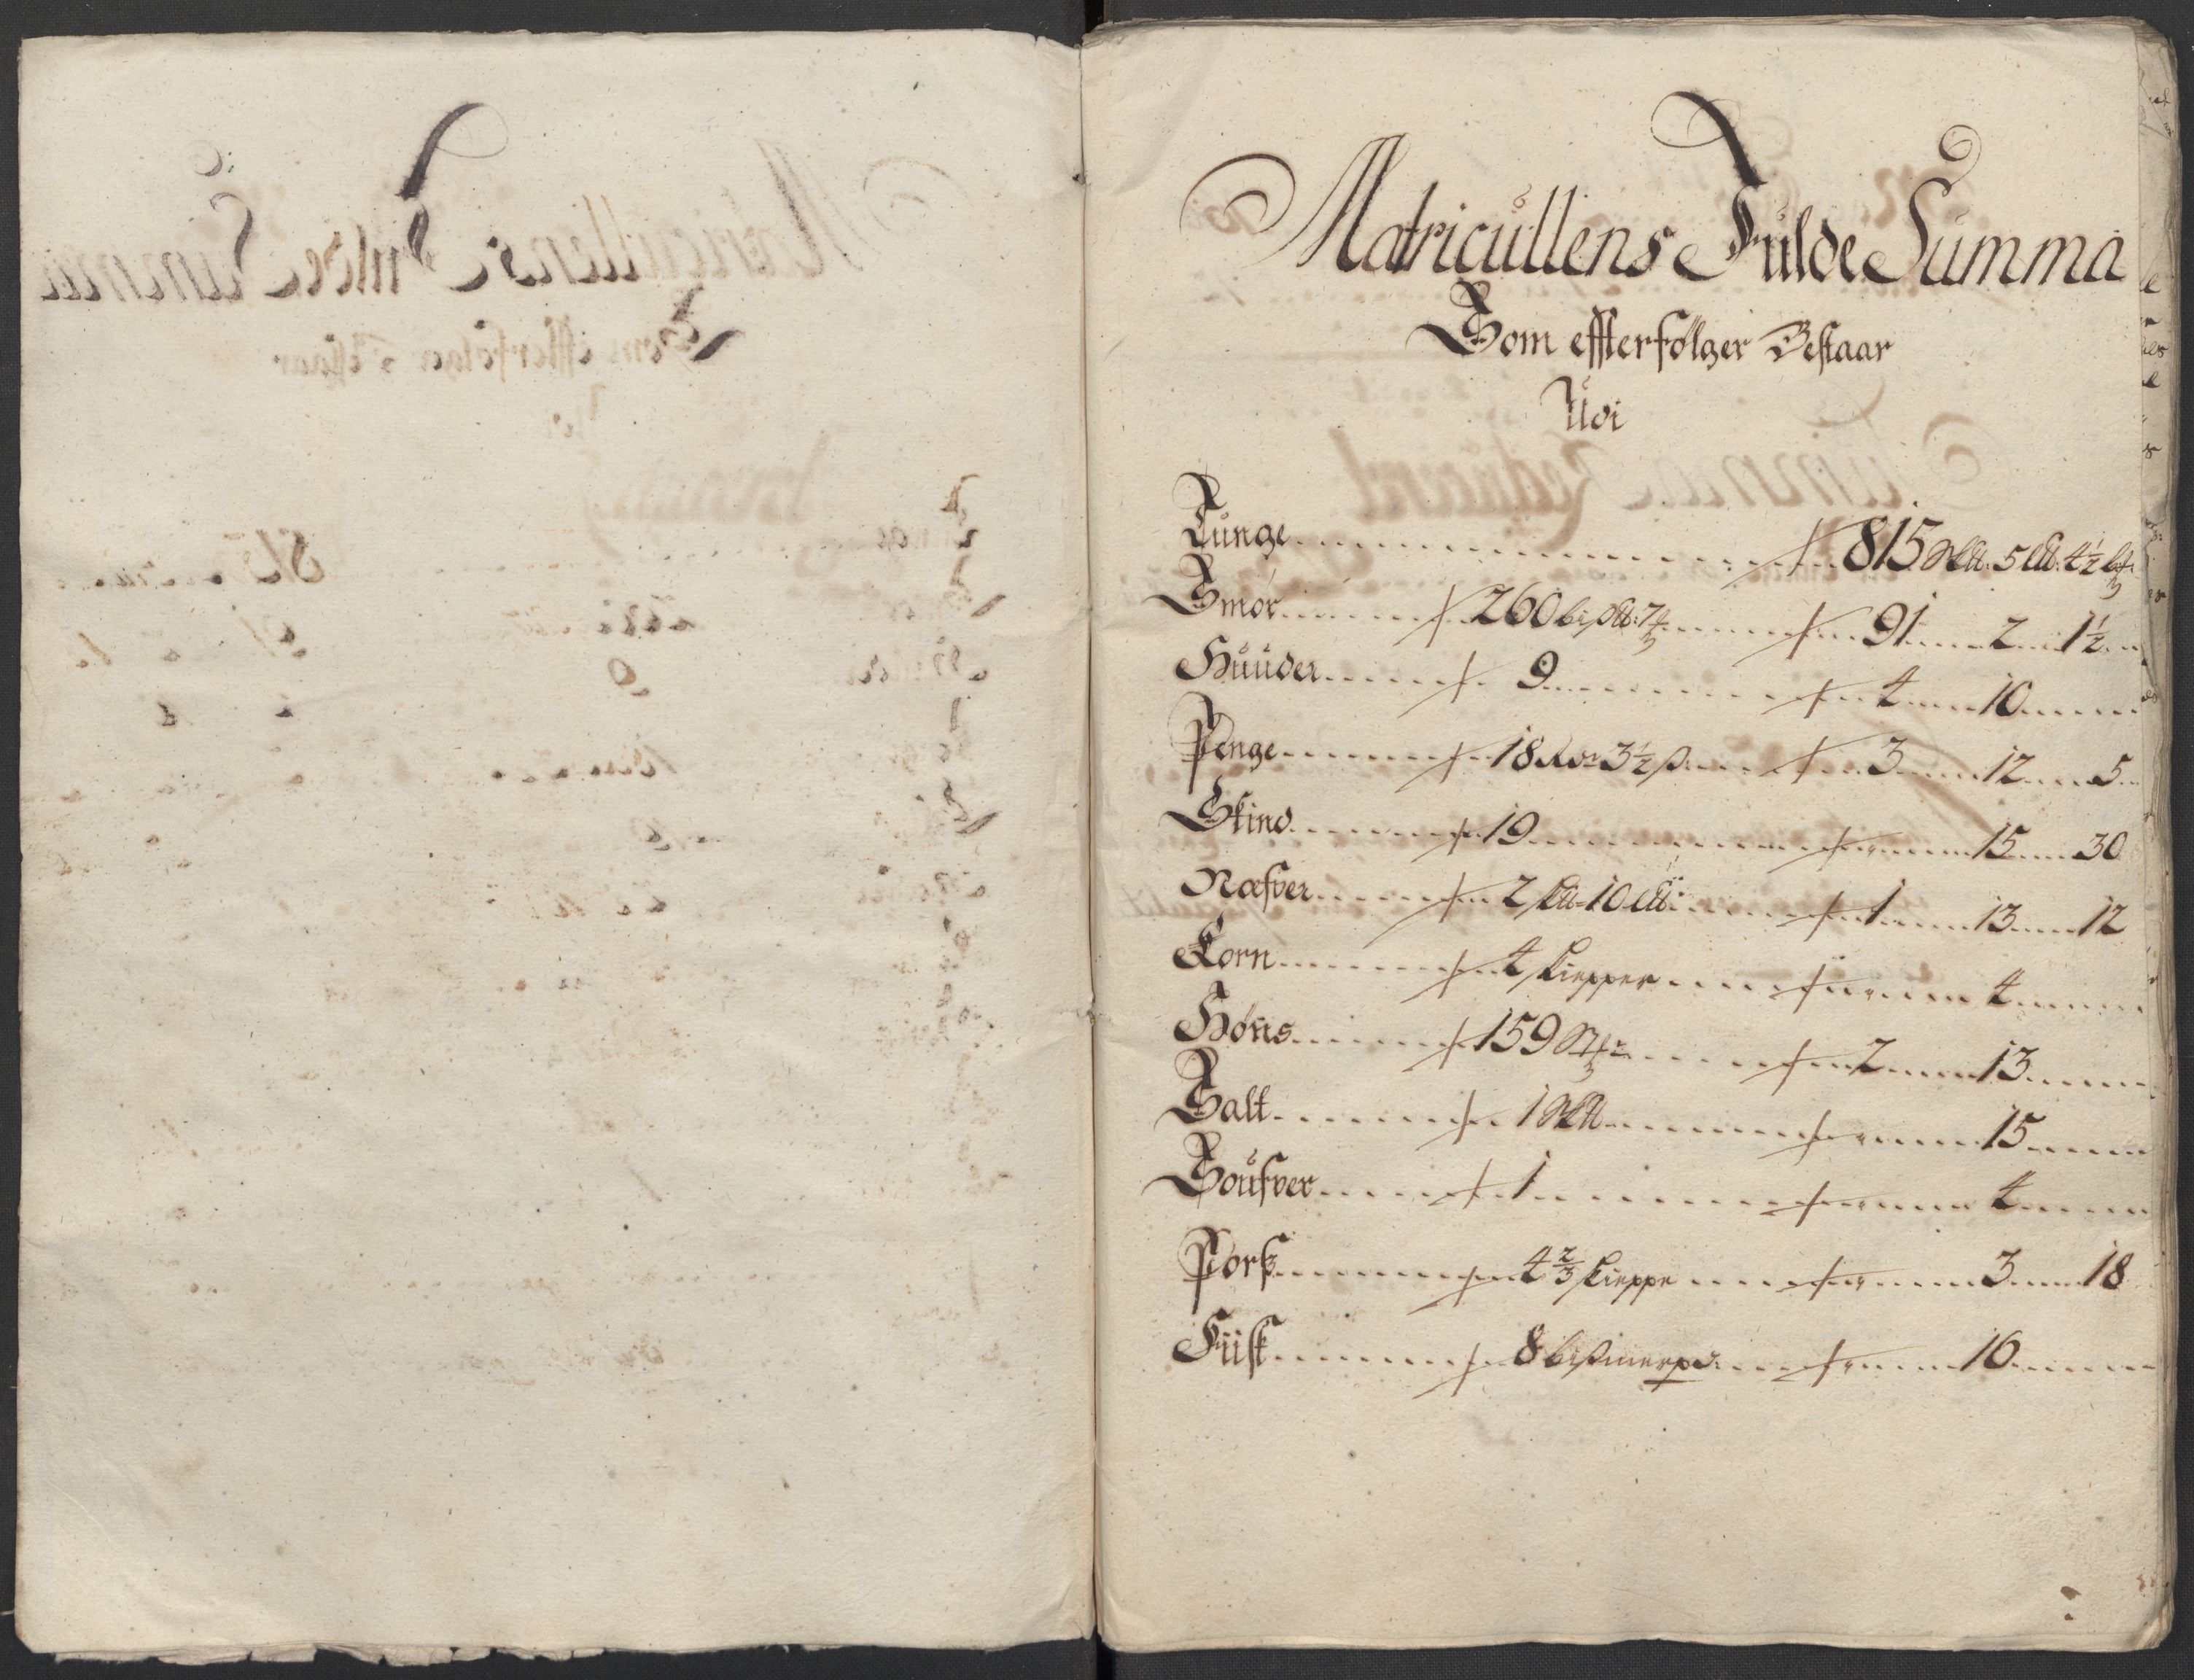 Matricullens Fulde Summa
Som effterfølger Bestaar
Udi
Tunge 815 5 4½
Smør 260 91 2 1½
Huuder 9 4 10
Penge 18 Rdr 3½ ß 3 12 5
Skind 19 15 30
Næfver 2 10 1 13 12
Korn 4 kiepper 4
Høns 159 2 13
Salt 1 15
Boufver 1 4
Pors 4⅔ kieppe 3 18
Fiisk 8 bißmerpd: 16